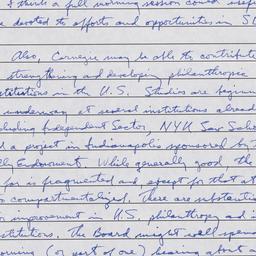 I think a full morning session could usef
be devoted to efforts and opportunities in S
Also, Carnegie may be able to contribute
strengthening and developing philanthropic
stitutions in the U.S. Studies are beginni
underway at several institutions alread
cluding Independent Sector, NYU Law Scho
d a project in Indianapolis sponsored by t
lly Endowment. While generally good the
far is fragmented and, except for that at
o compartmentalized. There are substantia
r improvement in U.S. philanthropy and i
stitutions. The Board might well spend
orning (or part of one) hearing about a